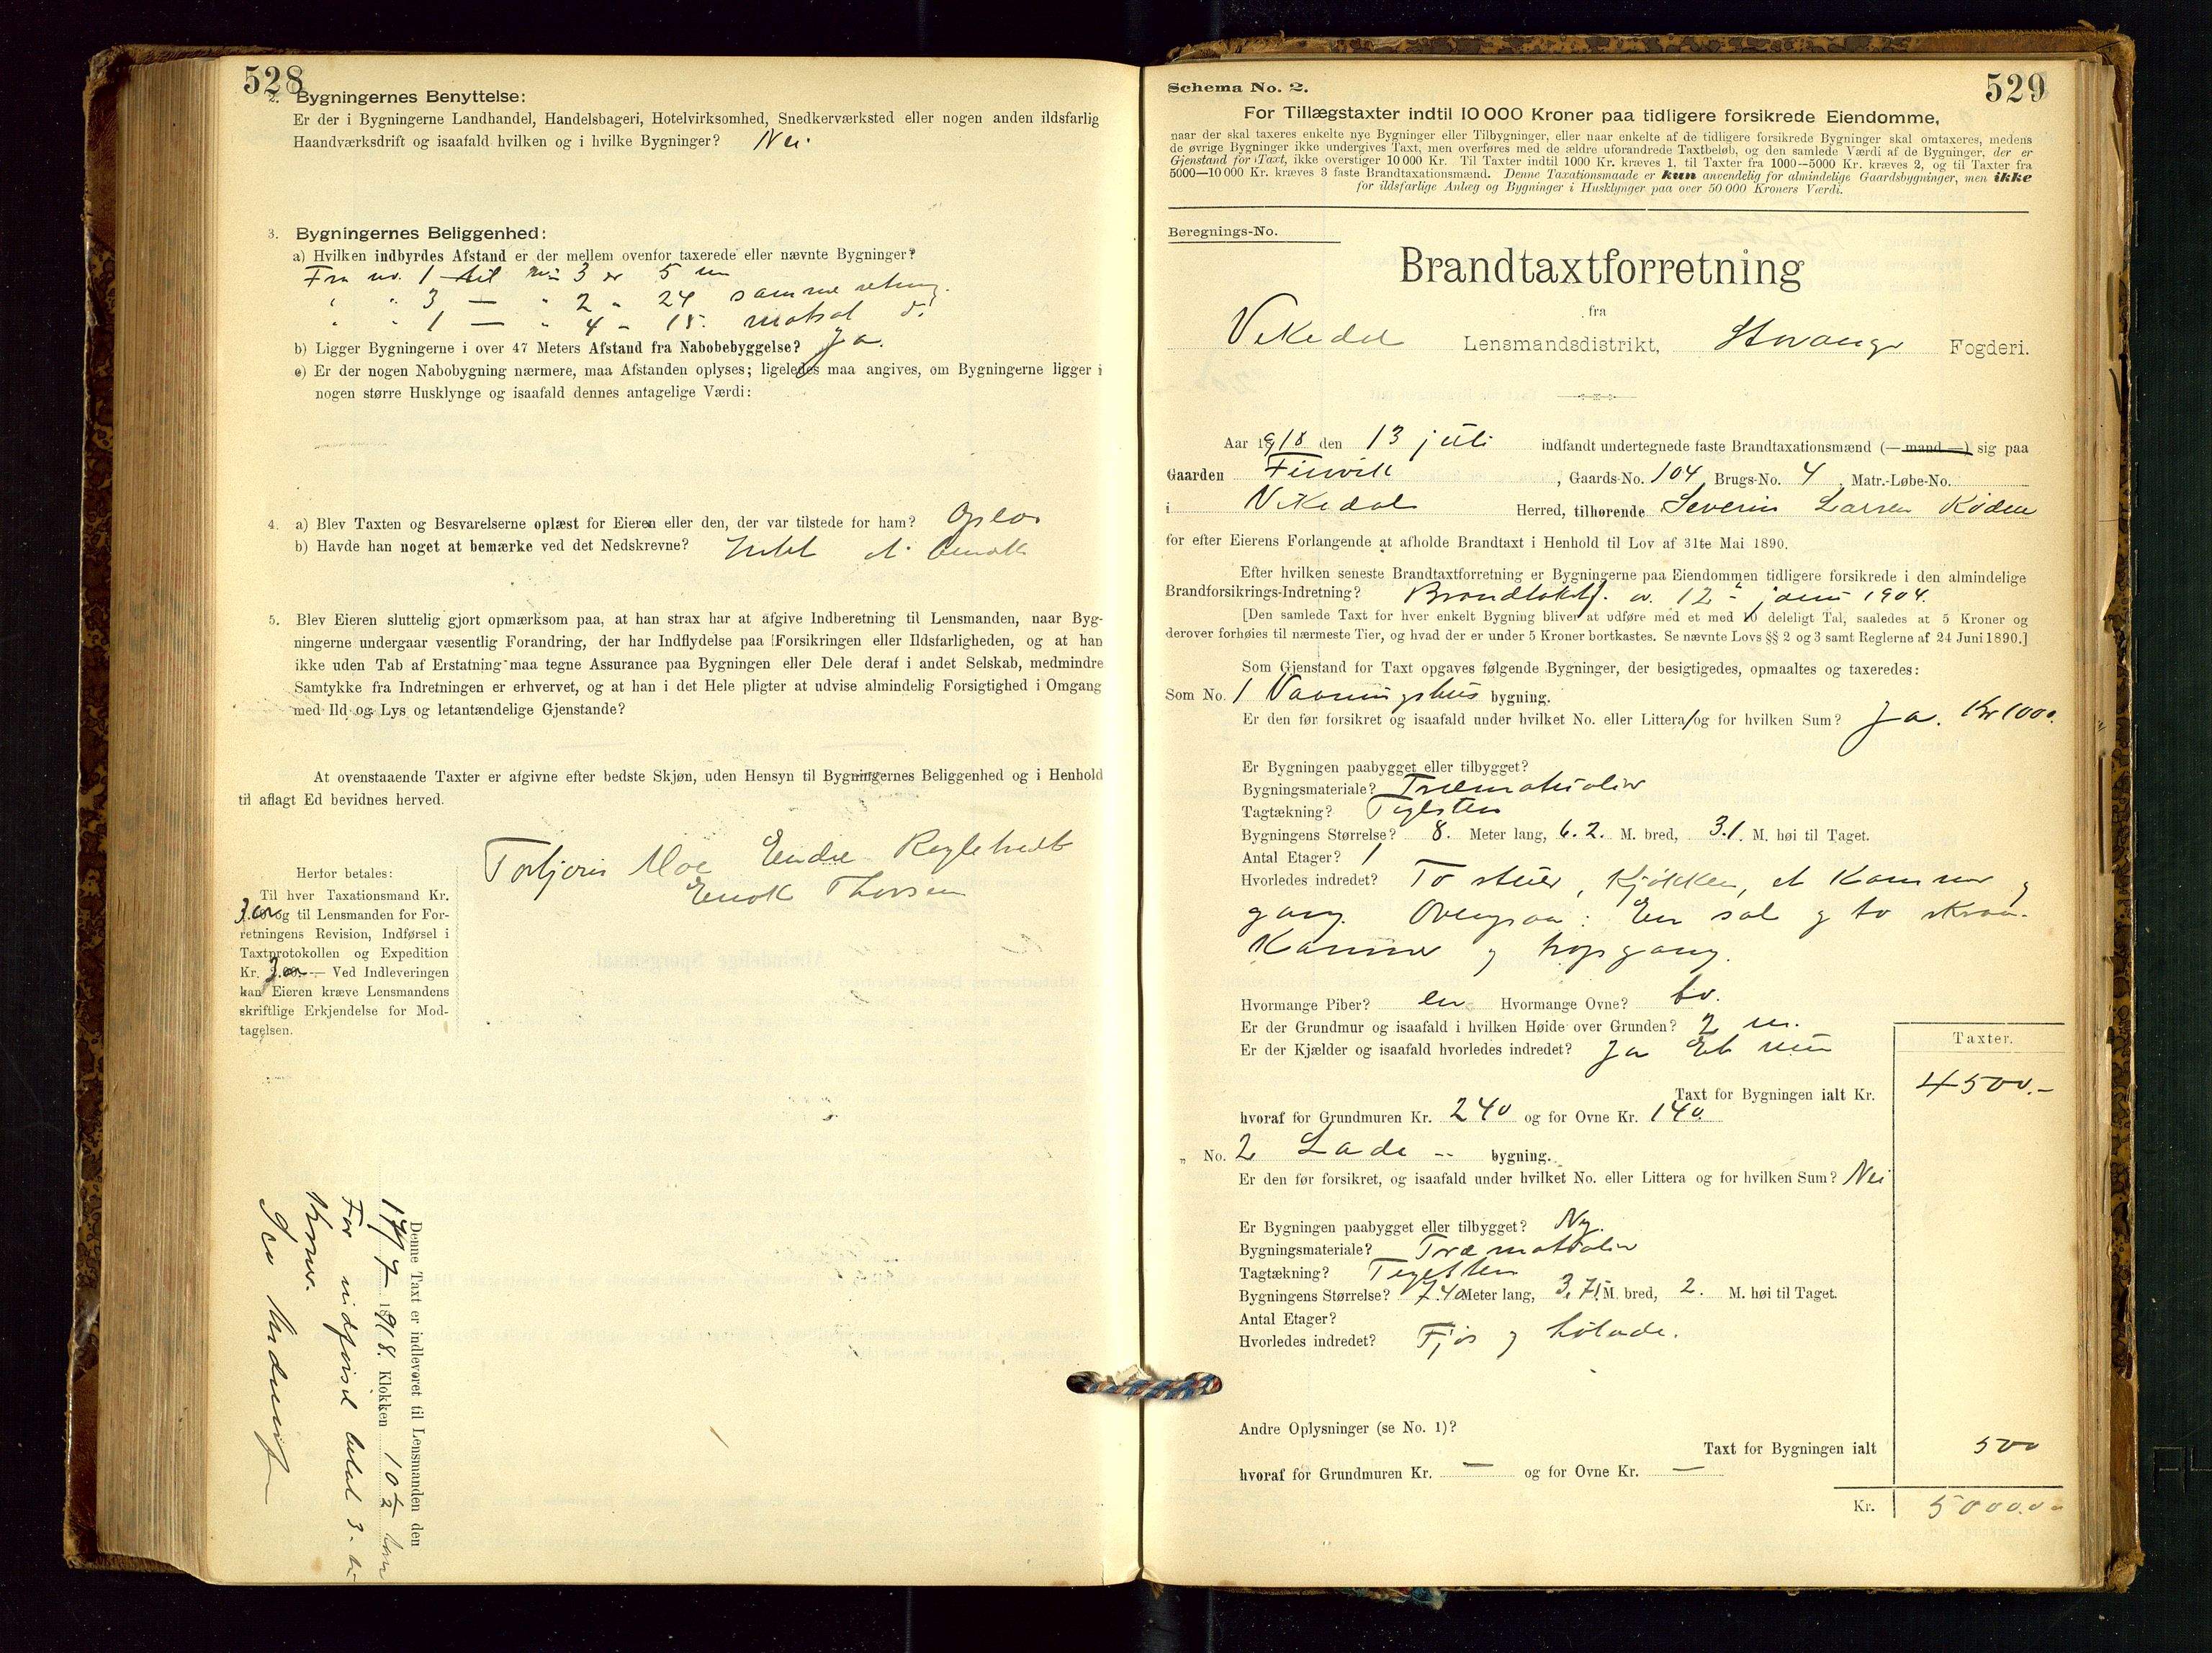 528
2. Bygningernes Benyttelse:
Er der i Bygningerne Landhandel, Handelsbageri, Hotelvirksomhed, Snedkerværksted eller nogen anden ildsfarlig
Haandværksdrift og isaafald hvilken og i hvilke Bygninger? Nei.
3. Bygningernes Beliggenhed:
a) Hvilken indbyrdes Afstand er der mellem ovenfor taxerede eller nævnte Bygninger?
Fra no. 1 til no 3 er 5 m
" " 3 — " 2 " 24 samme retning.
" " 1 — " 4 " 15. motsat d.
b) Ligger Bygningerne i over 47 Meters Afstand fra Nabobebyggelse? Ja.
c) Er der nogen Nabobygning nærmere, maa Afstanden oplyses; ligeledes maa angives, om Bygningerne ligger i
nogen større Husklynge og isaafald dennes antagelige Værdi:
4. a) Blev Taxten og Besvarelserne oplæst for Eieren eller den, der var tilstede for ham? Oplæs
b) Havde han noget at bemærke ved det Nedskrevne? Intet at bemerke
5. Blev Eieren sluttelig gjort opmærksom paa, at han strax har at afgive Indberetning til Lensmanden, naar Byg-
ningerne undergaar væsentlig Forandring, der har Indflydelse paa Forsikringen eller Ildsfarligheden, og at han
ikke uden Tab af Erstatning maa tegne Assurance paa Bygningen eller Dele deraf i andet Selskab, medmindre
Samtykke fra Indretningen er erhvervet, og at han i det Hele pligter at udvise almindelig Forsigtighed i Omgang
med Ild og Lys og letantændelige Gjenstande?
At ovenstaaende Taxter er afgivne efter bedste Skjøn, uden Hensyn til Bygningernes Beliggenhed og i Henhold
til aflagt Ed bevidnes herved.
Torbjørn Moe Endre
Enok Thorsen
Herfor betales:
Til hver Taxationsmand Kr.
3.00 og til Lensmanden for For-
retningens Revision, Indførsel i
Taxtprotokollen og Expedition
Kr. 3.00.— Ved Indleveringen
kan Eieren kræve Lensmandens
skriftlige Erkjendelse for Mod-
tagelsen.
Denne Taxt er indleveret til Lensmanden den
17/7 1918. Klokken 10 1/2
For indførsel betalt 3.
Kroner.
529
Schema No. 2.
For Tillægstaxter indtil 10 000 Kroner paa tidligere forsikrede Eiendomme,
naar der skal taxeres enkelte nye Bygninger eller Tilbygninger, eller naar enkelte af de tidligere forsikrede Bygninger skal omtaxeres, medens
de øvrige Bygninger ikke undergives Taxt, men overføres med de ældre uforandrede Taxtbeløb, og den samlede Værdi af de Bygninger, der er
Gjenstand for Taxt, ikke overstiger 10 000 Kr. Til Taxter indtil 1000 Kr. kræves 1, til Taxter fra 1000—5000 Kr. kræves 2, og til Taxter fra
5000—10 000 Kr. kræves 3 faste Brandtaxationsmænd. Denne Taxationsmaade er kun anvendelig for almindelige Gaardsbygninger, men ikke
for ildsfarlige Anlæg og Bygninger i Husklynger paa over 50 000 Kroners Værdi.
Beregnings-No.
Brandtaxtforretning
fra
Vikedal Lensmandsdistrikt, Stavanger Fogderi.
Aar 1918 den 13 juli indfandt undertegnede faste Brandtaxationsmænd (—mand—) sig paa
Gaarden , Gaards-No. 104, Brugs-No. 4, Matr.-Løbe-No.
i Vikedal Herred, tilhørende Severin Larsen
for efter Eierens Forlangende at afholde Brandtaxt i Henhold til Lov af 31te Mai 1890.
Efter hvilken seneste Brandtaxtforretning er Bygningerne paa Eiendommen tidligere forsikrede i den almindelige
Brandforsikrings-Indretning? Brandtakstf. av 12 1904.
[Den samlede Taxt for hver enkelt Bygning bliver at udføre med et med 10 deleligt Tal, saaledes at 5 Kroner og
derover forhøies til nærmeste Tier, og hvad der er under 5 Kroner bortkastes. Se nævnte Lovs §§ 2 og 3 samt Reglerne af 24 Juni 1890.]
Som Gjenstand for Taxt opgaves følgende Bygninger, der besigtigedes, opmaaltes og taxeredes:
Som No. 1 Vaaningshus bygning.
Er den før forsikret og isaafald under hvilket No. eller Littera og for hvilken Sum? Ja. Kr 1000.
Er Bygningen paabygget eller tilbygget?
Bygningsmateriale? Træmaterialer
Tagtækning? Teglsten
Bygningens Størrelse? 8. Meter lang, 6.2. M. bred, 3.1. M. høi til Taget.
Antal Etager? 1
Hvorledes indredet? To stuer, Kjøkken, et Kammer og
gang. Ovenpaa: En sal og to skraa-
Kammer og trapgang.
Hvormange Piber? en Hvormange Ovne? to.
Er der Grundmur og isaafald i hvilken Høide over Grunden? 2 m.
Er der Kjælder og isaafald hvorledes indredet? Ja Et rum
Taxter.
Taxt for Bygningen ialt Kr. 4500.-
hvoraf for Grundmuren Kr. 240 og for Ovne Kr. 140.
„ No. 2 Lade -- bygning.
Er den før forsikret, og isaafald under hvilket No. eller Littera og for hvilken Sum? Nei
Er Bygningen paabygget eller tilbygget? Ny.
Bygningsmateriale? Træmaterialer
Tagtækning? Teglsten
Bygningens Størrelse? 7.40 Meter lang, 3.75 M. bred, 2. M. høi til Taget.
Antal Etager?
Hvorledes indredet? Fjøs og hølade.
Andre Oplysninger (se No. 1)?
Taxt for Bygningen ialt 500
hvoraf for Grundmuren Kr. — og for Ovne Kr. —
Kr. 5000.00